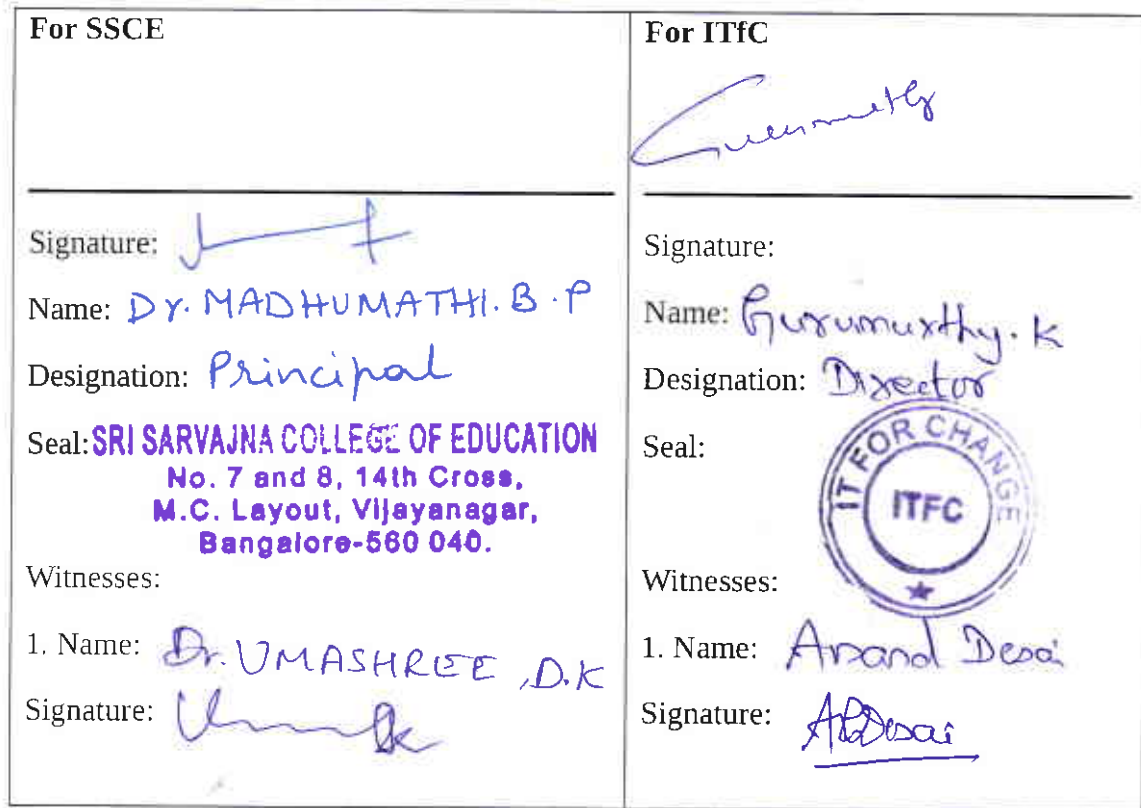 For SSCE
Signature:
Name: Dr. MADHUMATHI. B. P
Designation: Principal
Seal: SRI SARVAJNA COLLEGE OF EDUCATION
No. 7 and 8, 14th Cross,
M.C. Layout, Vijayanagar,
Bangalore-560 040.
Witnesses:
1. Name: Dr. UMASHREE, D.K
Signature:
For ITfC
Gurumurthy
Signature:
Name: Gurumurthy. K
Designation: Director
Seal:
IT FOR CHANGE
ITFC
Witnesses:
1. Name: Anand Desai
Signature: APDesai